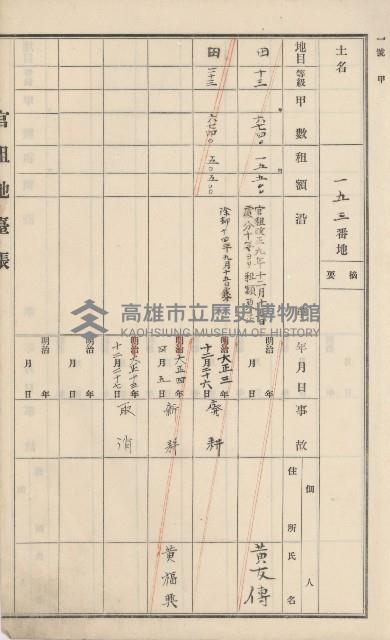 一號 甲
土名
一五三番地
摘要
地目 等級 甲數 租額 沿革 年月日 事故 個人 住所 氏名
田 十三 六七四〇 一五五〇〇
官租改正三九年十二月
明治 年 月 日
黃友傳
田 一三 六七四〇 五〇五〇〇
除却十四年九月十五日
明治 大正三年 十二月二十六日
廢耕
明治 大正四年 四月五日
新耕
黃福興
明治 大正十三年 十二月二十七日
取消
明治 年 月 日
明治 年 月 日
官租地臺帳
高雄市立歷史博物館
KAOHSIUNG MUSEUM OF HISTORY